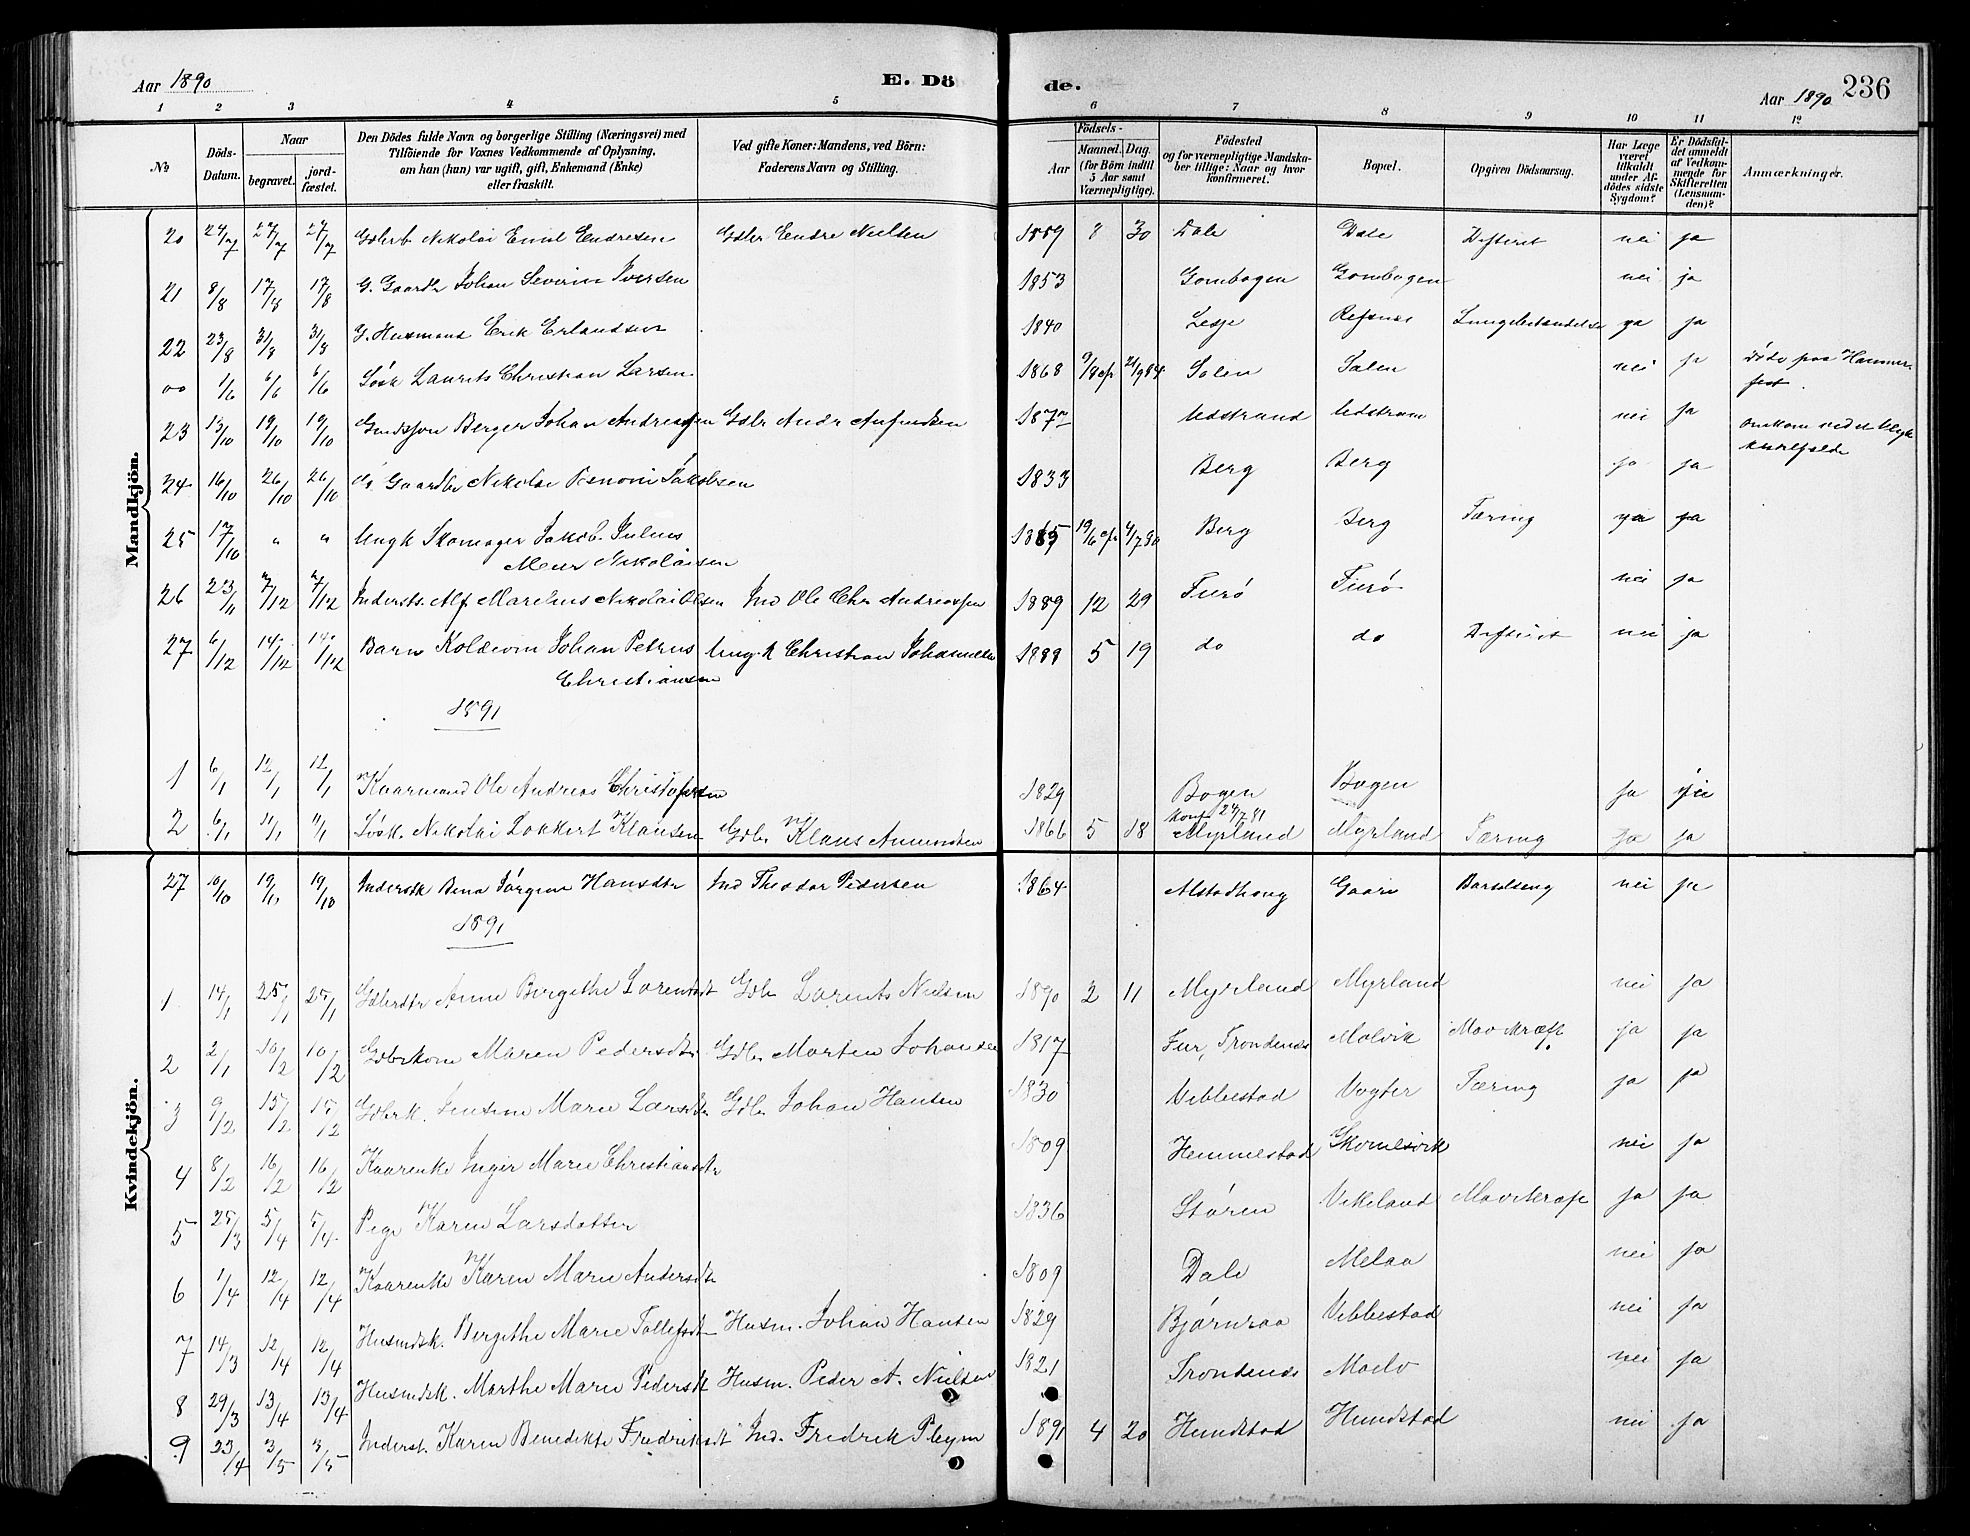 Aar 1890
E. Dö
de.
Aar 1890
236
1 2 3 4 5 6 7 8 9 10 11 12
No
Döds-Datum.
Naar
begravet.
jord-fæstet.
Den Dödes fulde Navn og borgerlige Stilling (Næringsvei) med
Tilföiende for Voxnes Vedkommende af Oplysning,
om han (hun) var ugift, gift, Enkemand (Enke)
eller fraskilt.
Ved gifte Koner: Mandens, ved Börn:
Faderens Navn og Stilling.
Födsels-
Aar
Maaned. Dag.
(for Börn indtil
5 Aar samt
Værnepligtige).
Födested
og for værnepligtige Mandska-
ber tillige: Naar og hvor
konfirmeret.
Bopæl.
Opgiven Dödsaarsag.
Har Læge
været
tilkaldt
under Af-
dödes sidste
Sygdom?
Er Dödsfal-
det anmeldt
af Vedkom-
mende for
Skifteretten
(Lensman-
den)?
Anmærkninger.
Mandkjön.
20 24/7 27/7 27/7 Gdbrb Nikolai Emil Endresen Gdbr Endre Nielsen 1889 30 Dale Dale Difterit nei ja
21 8/8 17/8 17/8 G. Gaardbr Johan Severin Iversen 1853 Gombogen Gombogen nei ja
22 23/8 31/8 31/8 G. Husmand Erik Erlandsen 1840 Lesje Refsnes ja ja
00 1/6 6/6 6/6 Søsk Laurits Christian Larsen 1868 Salen Salen nei ja døde paa Hammer-
fest.
23 13/10 19/10 19/10 Berger Johan Andreassen Gdbr 1877 Udstrand Udstrand nei ja omkom ved et
24 16/10 26/10 26/10 G. Gaardbr Nikolai Jakobsen 1833 Berg Berg ja ja
25 17/10 " " Ungk Skomager Jakob Julius
Meier Nikolaisen Berg Berg Tæring ja ja
26 23/11 7/12 7/12 Indersts. Alf Marelius Nikolai Olsen Ind Ole Chr Andreassen 1889 12 29 nei ja
27 6/12 14/12 14/12 Barn Koldevin Johan Petrus Ungk Christian Johannesen 1888 5 19 do do Difterit nei ja
Christiansen
1891
1 6/1 12/1 12/1 Kaarmand Ole Andreas Christofersen 1829 Bogen Bogen ja
2 6/1 11/1 11/1 Søsk. Nikolai Lokkert Klausen Gdbr Klaus Amundsen 1866 5 18 Konf 24/7 81
Myrland Myrland Tæring ja ja
Kvindekjön.
27 10/10 19/10 19/10 Inderstk Bena Jørgine Hansdtr Ind Theodor Pedersen 1864 Alstadhoug Gaare Barselseng nei ja
1891
1 14/1 25/1 25/1 Gdbrdtr Anne Bergithe Lorentsdt Gdbr Lorents Nielsen 1890 2 11 Myrland Myrland nei ja
2 2/1 10/2 10/2 Gdbrkone Maren Pedersdtr Gdbr Morten Johansen 1817 Trondenes Molvik Mavekræft ja ja
3 9/2 15/2 15/2 Gdbrk. Jensine Marie Larsdtr Gdbr Johan Hansen 1830 Vebbestad Vogter Tæring ja ja
4 8/2 16/2 16/2 Kaarenke Inger Marie Christiansdtr 1809 Hemmestad nei ja
5 25/3 5/4 5/4 Pige Karen Larsdatter 1836 Støren Vikeland Mavekræft ja ja
6 1/4 12/4 12/4 Kaarenke Karen Marie Andersdtr 1809 Dale Melaa nei ja
7 14/3 12/4 12/4 Husmdsk. Bergithe Marie Tollefsdt Husm. Johan Hansen 1829 Bjørnraa Vebbestad nei ja
8 29/3 13/4 13/4 Husmdsk. Marthe Marie Pedersdt Husm. Peder A. Nielsen 1821 Trondenes Moelv nei ja
9 23/4 3/5 3/5 Inderst. Karen Benedikte Fredriksdt Ind. Fredrik Pleym 1891 4 20 Hundstad Hundstad nei ja